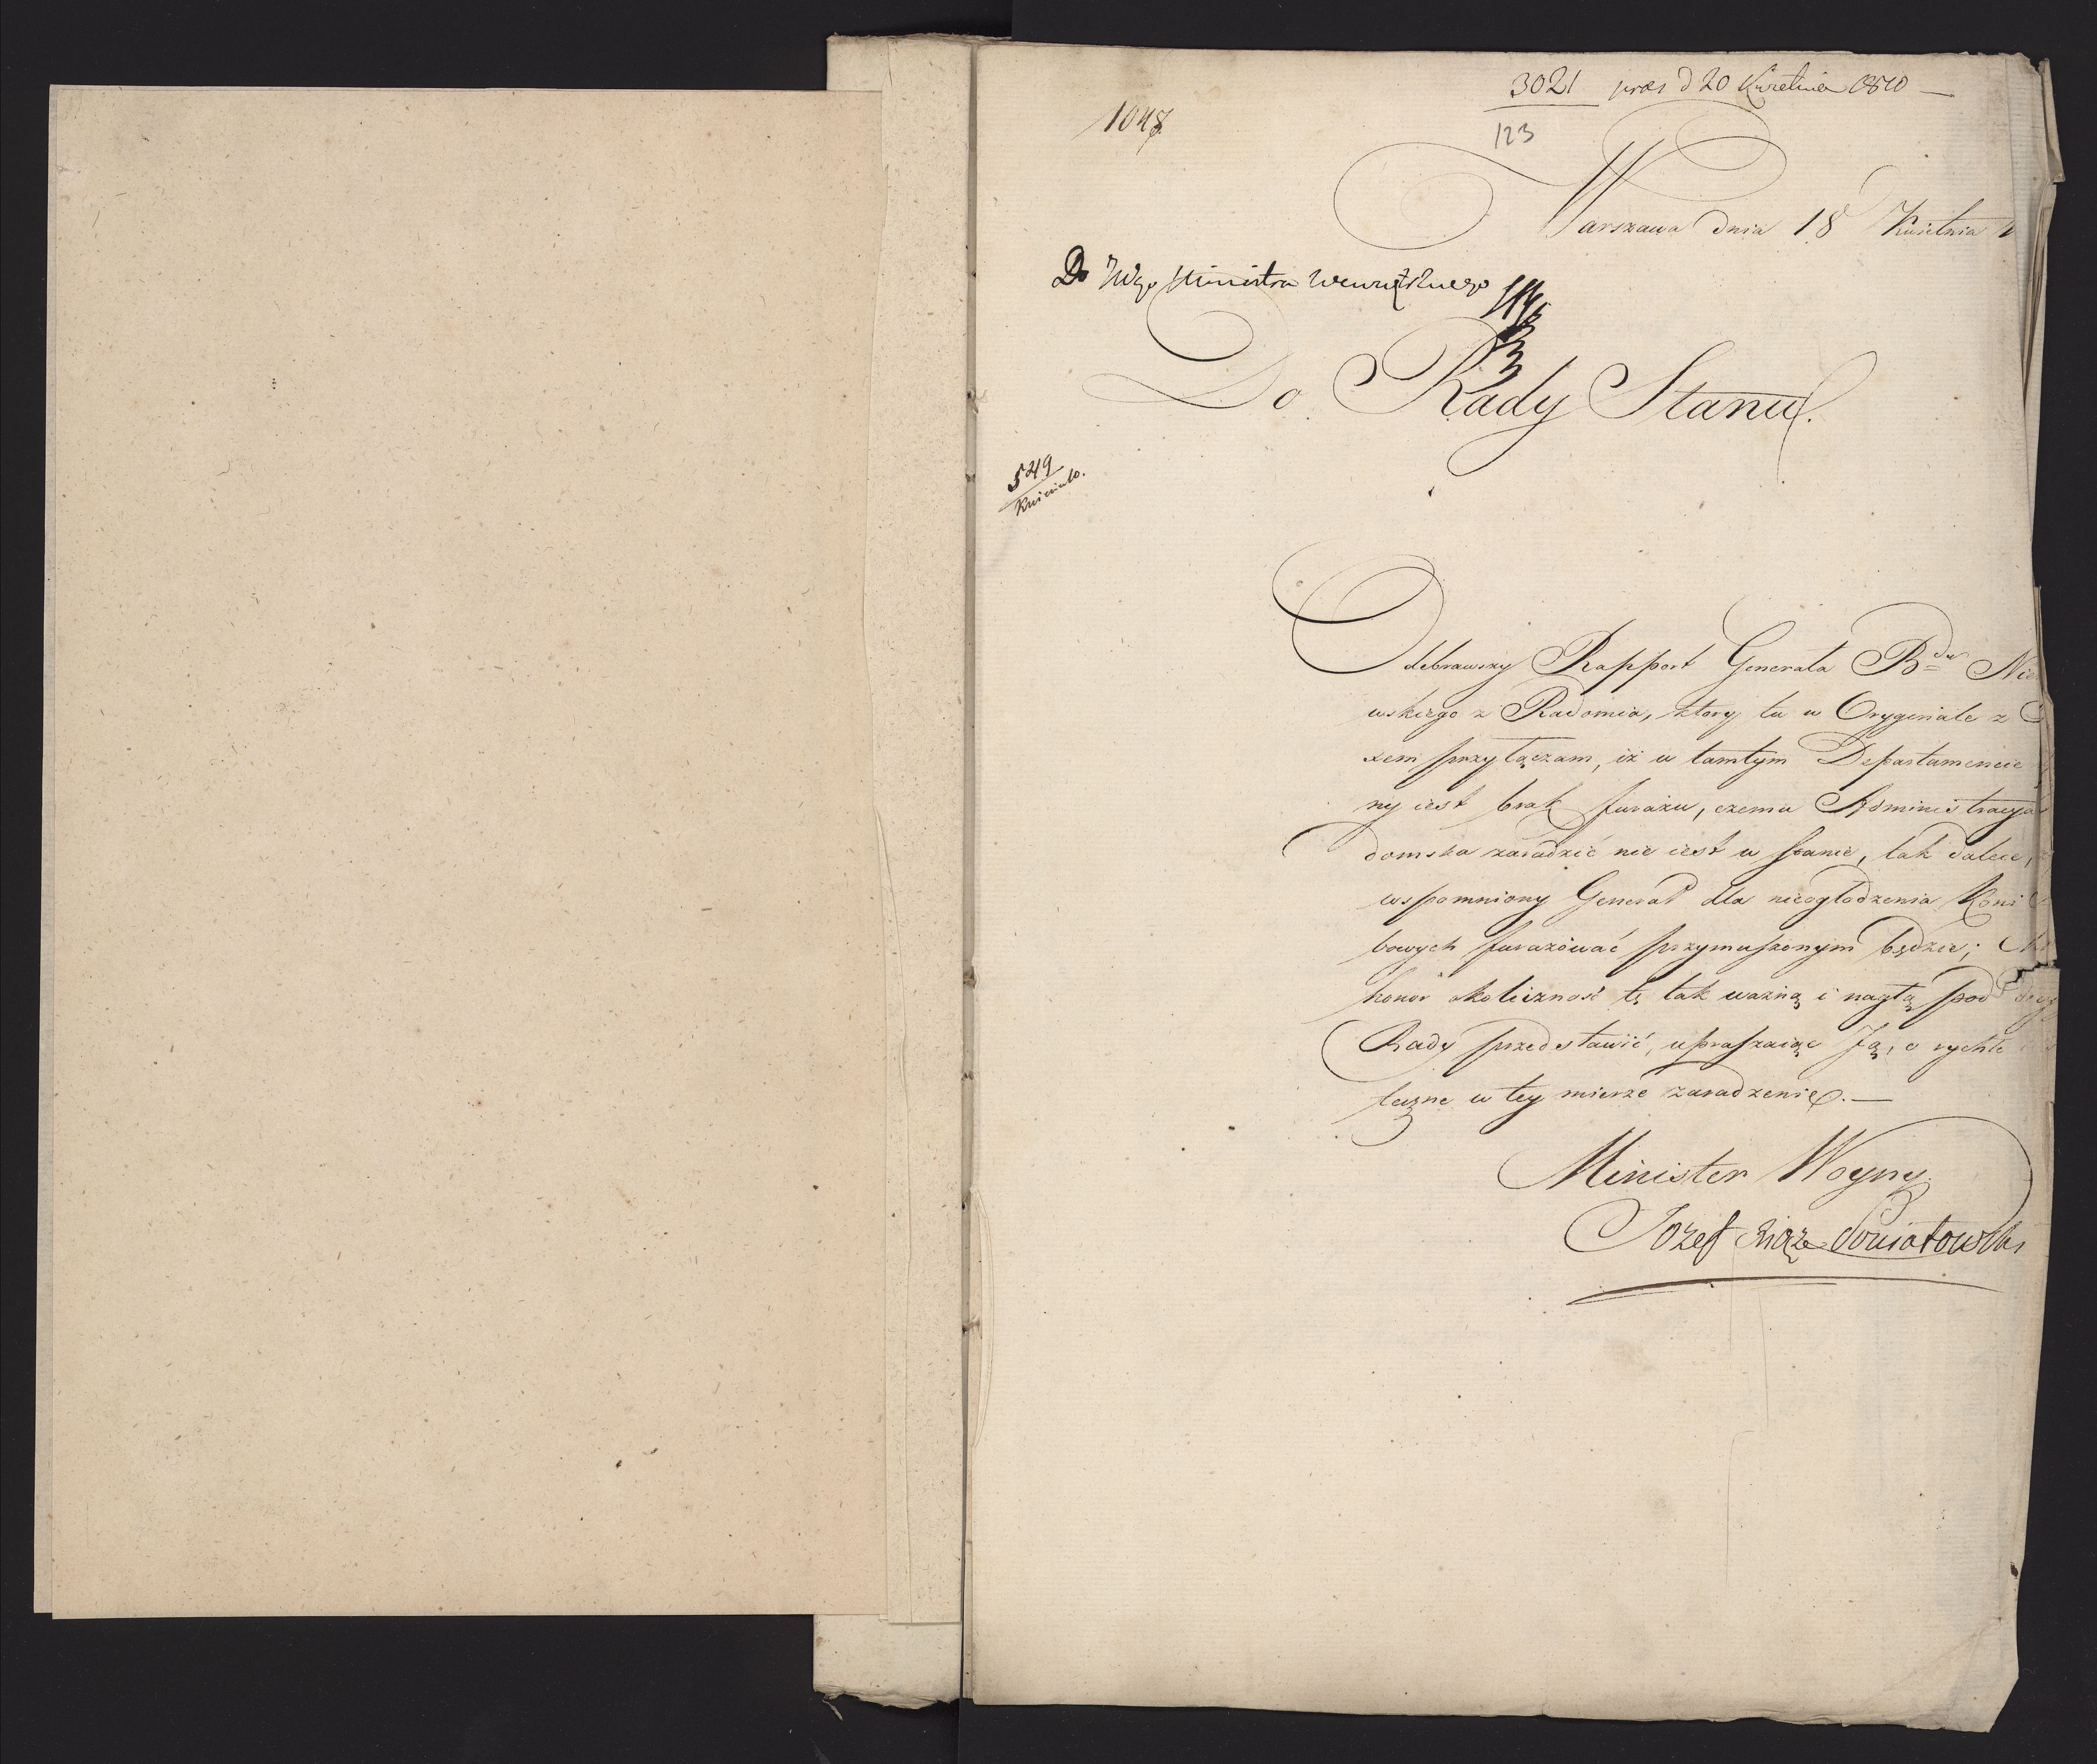 3021 pres d 20 Kwietnia 1810 —
1047
123
Warszawa dnia 18 Kwietnia
Do JWgo Ministra Wewnętrznego
Do Rady Stanu.
549
Odebrawszy Rapport Generała B Nie
wskiego z Radomia, ktory tu w Oryginale z
xem przyłączam, iż w tamtym Departamencie
ny iest brak furażu, czemu Administracya
domska zaradzić nie iest w stanie, tak dalece,
wspomniony Generał dla nieogłodzenia Koni
bowych furażować przymuszonym będzie;
honor okoliczność tę tak ważną i nagłą pod
Rady przedstawić, upraszaiąc Ją, o rychłe
teczne w tey mierze zaradzenie. —
Minister Woyny
Jozef Xiąże Poniatowski